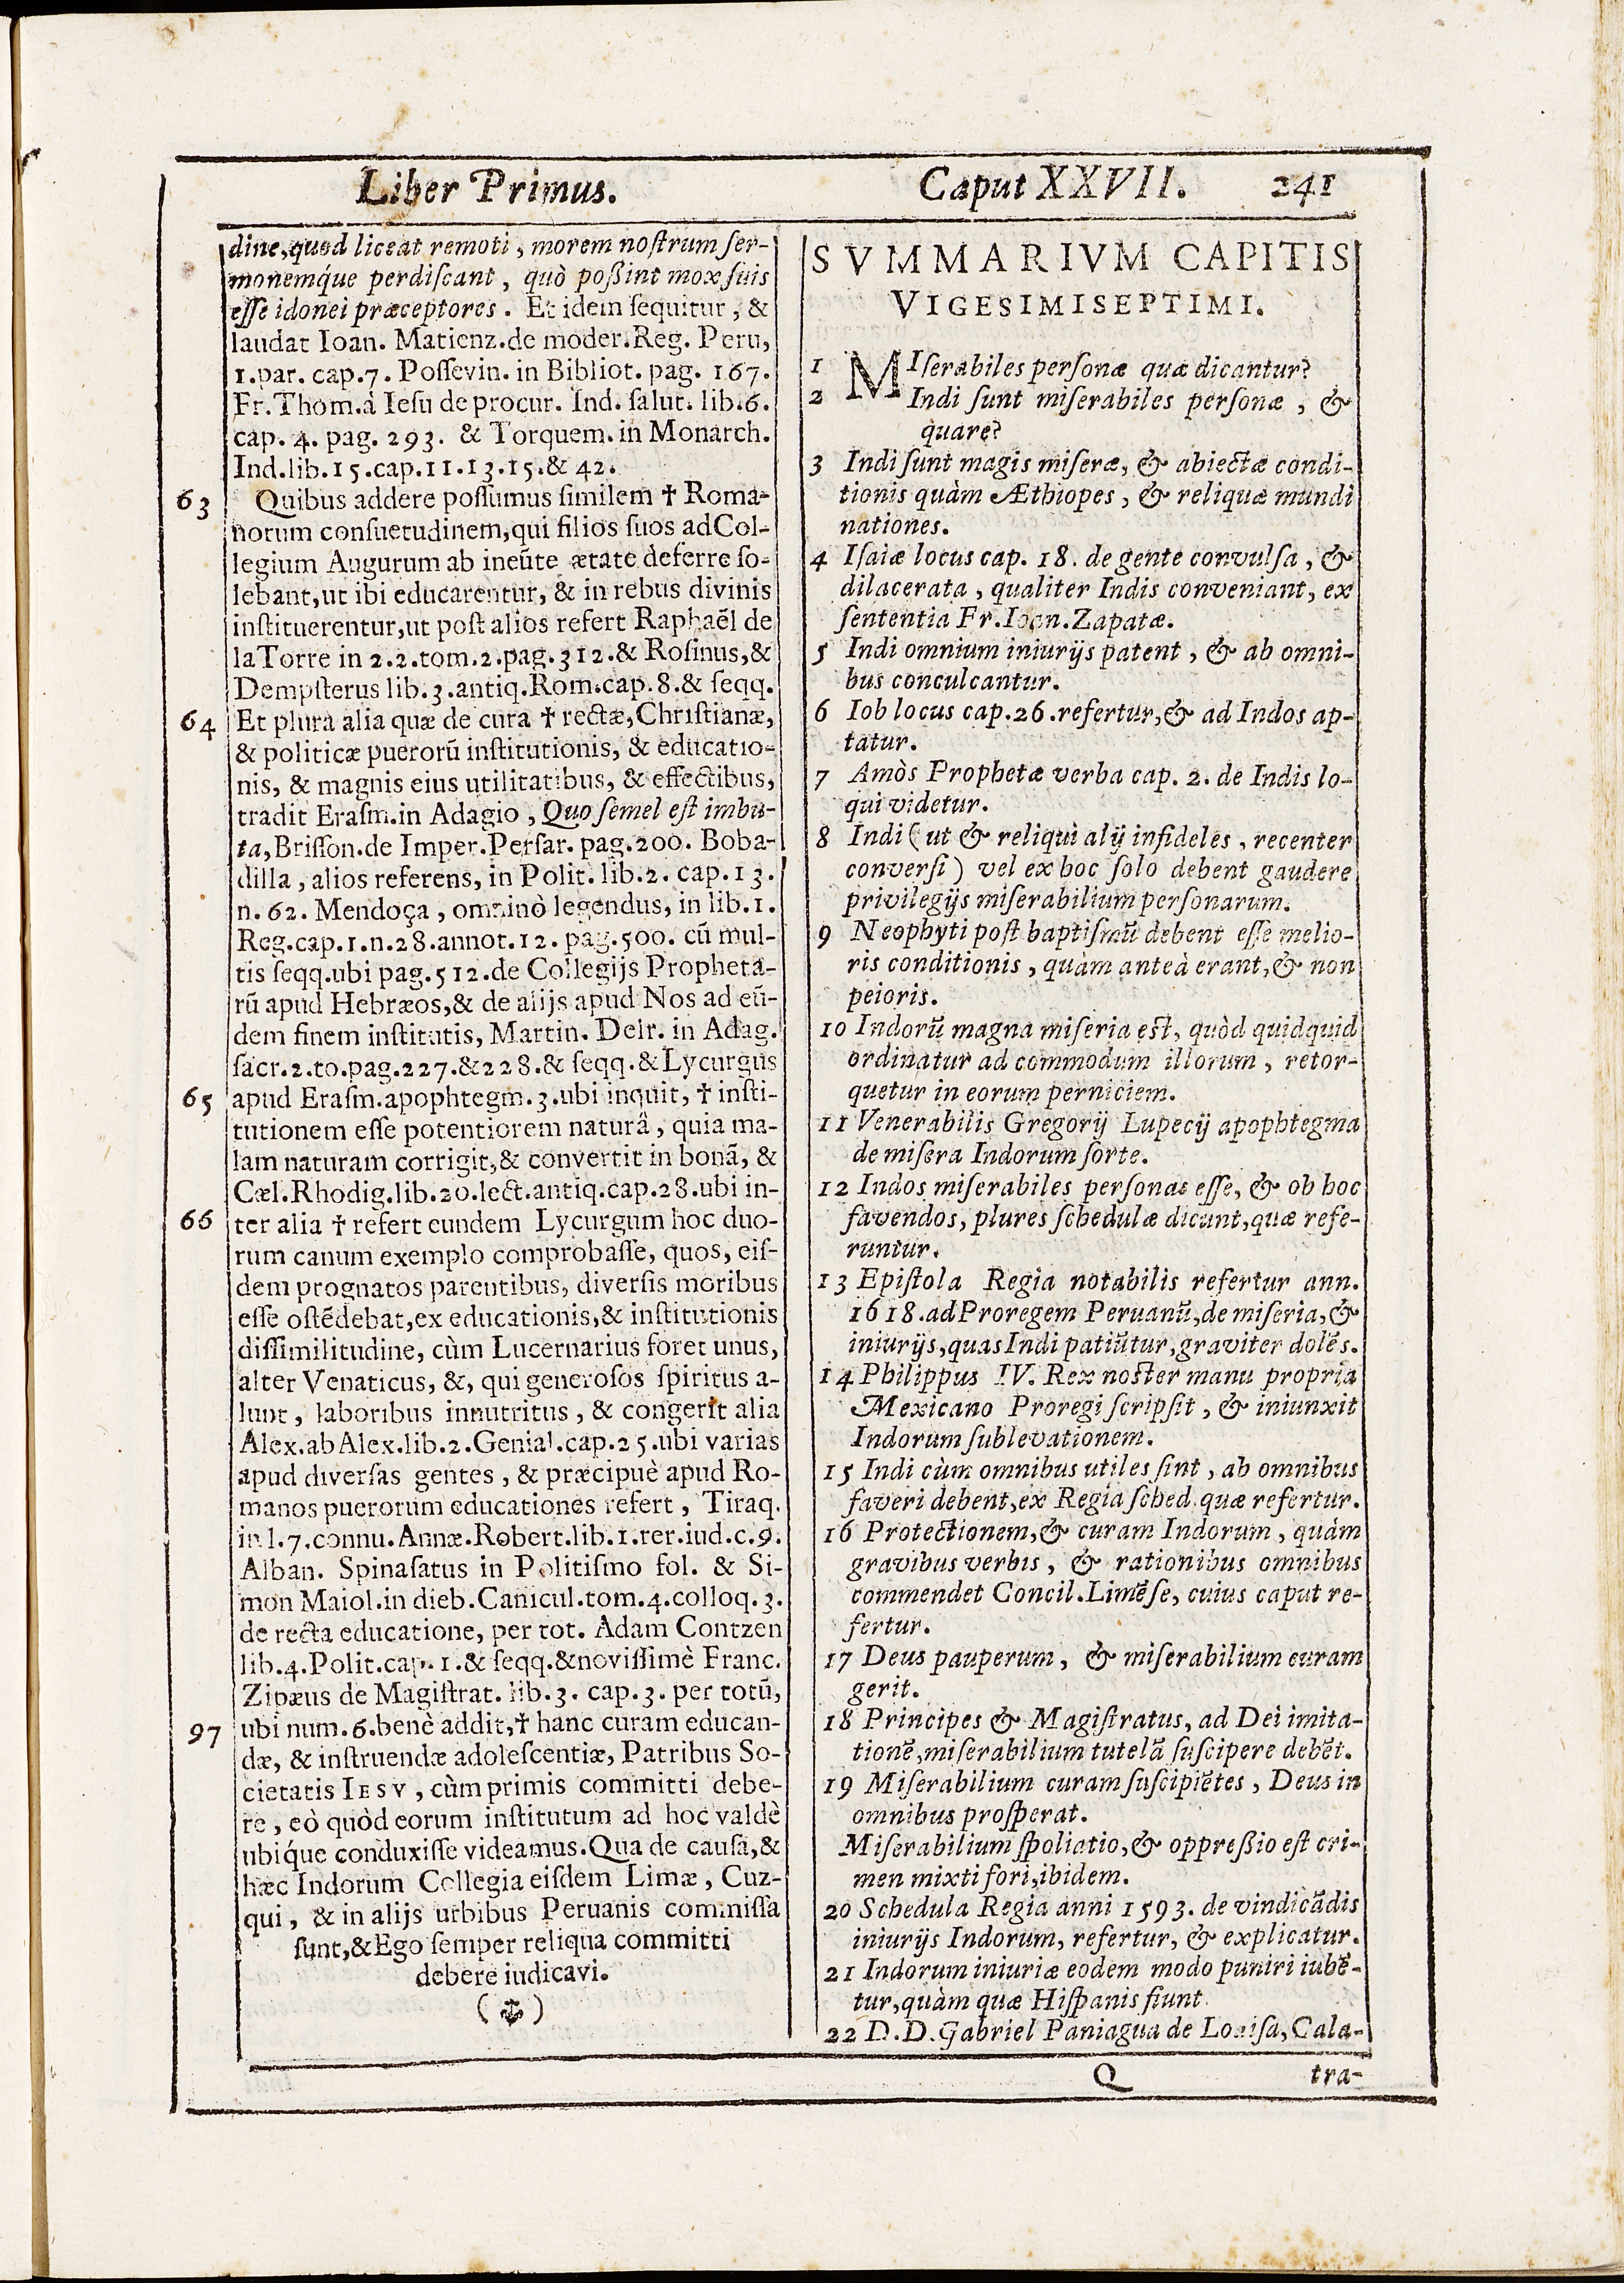 Liber Primus.
Caput XXVII. 241
dine, quod liceat remoti, morem noſtrum ſer-
monemq́ue perdiſcant, quò poßint mox ſuis
eſſe idonei præceptores. Et idem ſequitur, &
laudat Ioan. Matienz. de moder. Reg. Peru,
1. par. cap. 7. Poſſevin. in Bibliot. pag. 167.
Fr. Thom. à Ieſu de procur. Ind. ſalut. lib. 6.
cap. 4. pag. 293. & Torquem. in Monarch.
Ind. lib. 15. cap. 11. 13. 15. & 42.
63 Quibus addere poſſumus ſimilem † Roma-
norum conſuetudinem, qui filios ſuos ad Col-
legium Augurum ab ineũte ætate deferre ſo-
lebant, ut ibi educarentur, & in rebus divinis
inſtituerentur, ut poſt alios refert Raphaël de
la Torre in 2. 2. tom. 2. pag. 312. & Roſinus, &
Dempſterus lib. 3. antiq. Rom. cap. 8. & ſeqq.
64 Et plura alia quæ de cura † rectæ, Chriſtianæ,
& politicæ puerorũ inſtitutionis, & educatio-
nis, & magnis eius utilitatibus, & effectibus,
tradit Eraſm. in Adagio, Quo ſemel eſt imbu-
ta, Briſſon. de Imper. Perſar. pag. 200. Boba-
dilla, alios referens, in Polit. lib. 2. cap. 13.
n. 62. Mendoça, omninò legendus, in lib. 1.
Reg. cap. 1. n. 28. annot. 12. pag. 500. cũ mul-
tis ſeqq. ubi pag. 512. de Collegijs Propheta-
rũ apud Hebræos, & de alijs apud Nos ad eũ-
dem finem inſtitutis, Martin. Delr. in Adag.
ſacr. 2. to. pag. 227. & 228. & ſeqq. & Lycurgus
65 apud Eraſm. apophtegm. 3. ubi inquit, † inſti-
tutionem eſſe potentiorem naturâ, quia ma-
lam naturam corrigit, & convertit in bonã, &
Cæl. Rhodig. lib. 20. lect. antiq. cap. 28. ubi in-
66 ter alia † refert eundem Lycurgum hoc duo-
rum canum exemplo comprobaſſe, quos, eiſ-
dem prognatos parentibus, diverſis moribus
eſſe oſtẽdebat, ex educationis, & inſtitutionis
diſſimilitudine, cùm Lucernarius foret unus,
alter Venaticus, &, qui generoſos ſpiritus a-
lunt, laboribus innutritus, & congerit alia
Alex. ab Alex. lib. 2. Genial. cap. 25. ubi varias
apud diverſas gentes, & præcipuè apud Ro-
manos puerorum educationes refert, Tiraq.
in l. 7. connu. Annæ. Robert. lib. 1. rer. iud. c. 9.
Alban. Spinaſatus in Politiſmo fol. & Si-
mon Maiol. in dieb. Canicul. tom. 4. colloq. 3.
de recta educatione, per tot. Adam Contzen
lib. 4. Polit. cap. 1. & ſeqq. & noviſſimè Franc.
Zipæus de Magiſtrat. lib. 3. cap. 3. per totũ,
97 ubi num. 6. benè addit, † hanc curam educan-
dæ, & inſtruendæ adoleſcentiæ, Patribus So-
cietatis IESV, cùm primis committi debe-
re, eò quòd eorum inſtitutum ad hoc valdè
ubiq́ue conduxiſſe videamus. Qua de cauſa, &
hæc Indorum Collegia eiſdem Limæ, Cuz-
qui, & in alijs urbibus Peruanis commiſſa
ſunt, & Ego ſemper reliqua committi
debere iudicavi.
SVMMARIVM CAPITIS
VIGESIMISEPTIMI.
1 MIſerabiles perſonæ quæ dicantur?
2 Indi ſunt miſerabiles perſonæ, &
quare?
3 Indi ſunt magis miſeræ, & abiectæ condi-
tionis quàm Æthiopes, & reliquæ mundi
nationes.
4 Iſaiæ locus cap. 18. de gente convulſa, &
dilacerata, qualiter Indis conveniant, ex
ſententia Fr. Ioan. Zapatæ.
5 Indi omnium iniurijs patent, & ab omni-
bus conculcantur.
6 Iob locus cap. 26. refertur, & ad Indos ap-
tatur.
7 Amòs Prophetæ verba cap. 2. de Indis lo-
qui videtur.
8 Indi (ut & reliqui alij infideles, recenter
converſi) vel ex hoc ſolo debent gaudere
privilegijs miſerabilium perſonarum.
9 Neophyti poſt baptiſmũ debent eſſe melio-
ris conditionis, quàm anteà erant, & non
peioris.
10 Indorũ magna miſeria eſt, quòd quidquid
ordinatur ad commodum illorum, retor-
quetur in eorum perniciem.
11 Venerabilis Gregorij Lupecij apophtegma
de miſera Indorum ſorte.
12 Indos miſerabiles perſonas eſſe, & ob hoc
favendos, plures ſchedulæ dicunt, quæ refe-
runtur.
13 Epiſtola Regia notabilis refertur ann.
1618. ad Proregem Peruanũ, de miſeria, &
iniurijs, quas Indi patiũtur, graviter dolẽs.
14 Philippus IV. Rex noſter manu propria
Mexicano Proregi ſcripſit, & iniunxit
Indorum ſublevationem.
15 Indi cùm omnibus utiles ſint, ab omnibus
faveri debent, ex Regia ſched. quæ refertur.
16 Protectionem, & curam Indorum, quàm
gravibus verbis, & rationibus omnibus
commendet Concil. Limẽſe, cuius caput re-
fertur.
17 Deus pauperum, & miſerabilium curam
gerit.
18 Principes & Magiſtratus, ad Dei imita-
tionẽ, miſerabilium tutelã ſuſcipere debẽt.
19 Miſerabilium curam ſuſcipiẽtes, Deus in
omnibus proſperat.
Miſerabilium ſpoliatio, & oppreßio eſt cri-
men mixti fori, ibidem.
20 Schedula Regia anni 1593. de vindicãdis
iniurijs Indorum, refertur, & explicatur.
21 Indorum iniuriæ eodem modo puniri iubẽ-
tur, quàm quæ Hiſpanis fiunt.
22 D. D. Gabriel Paniagua de Loaiſa, Cala-
Q tra-